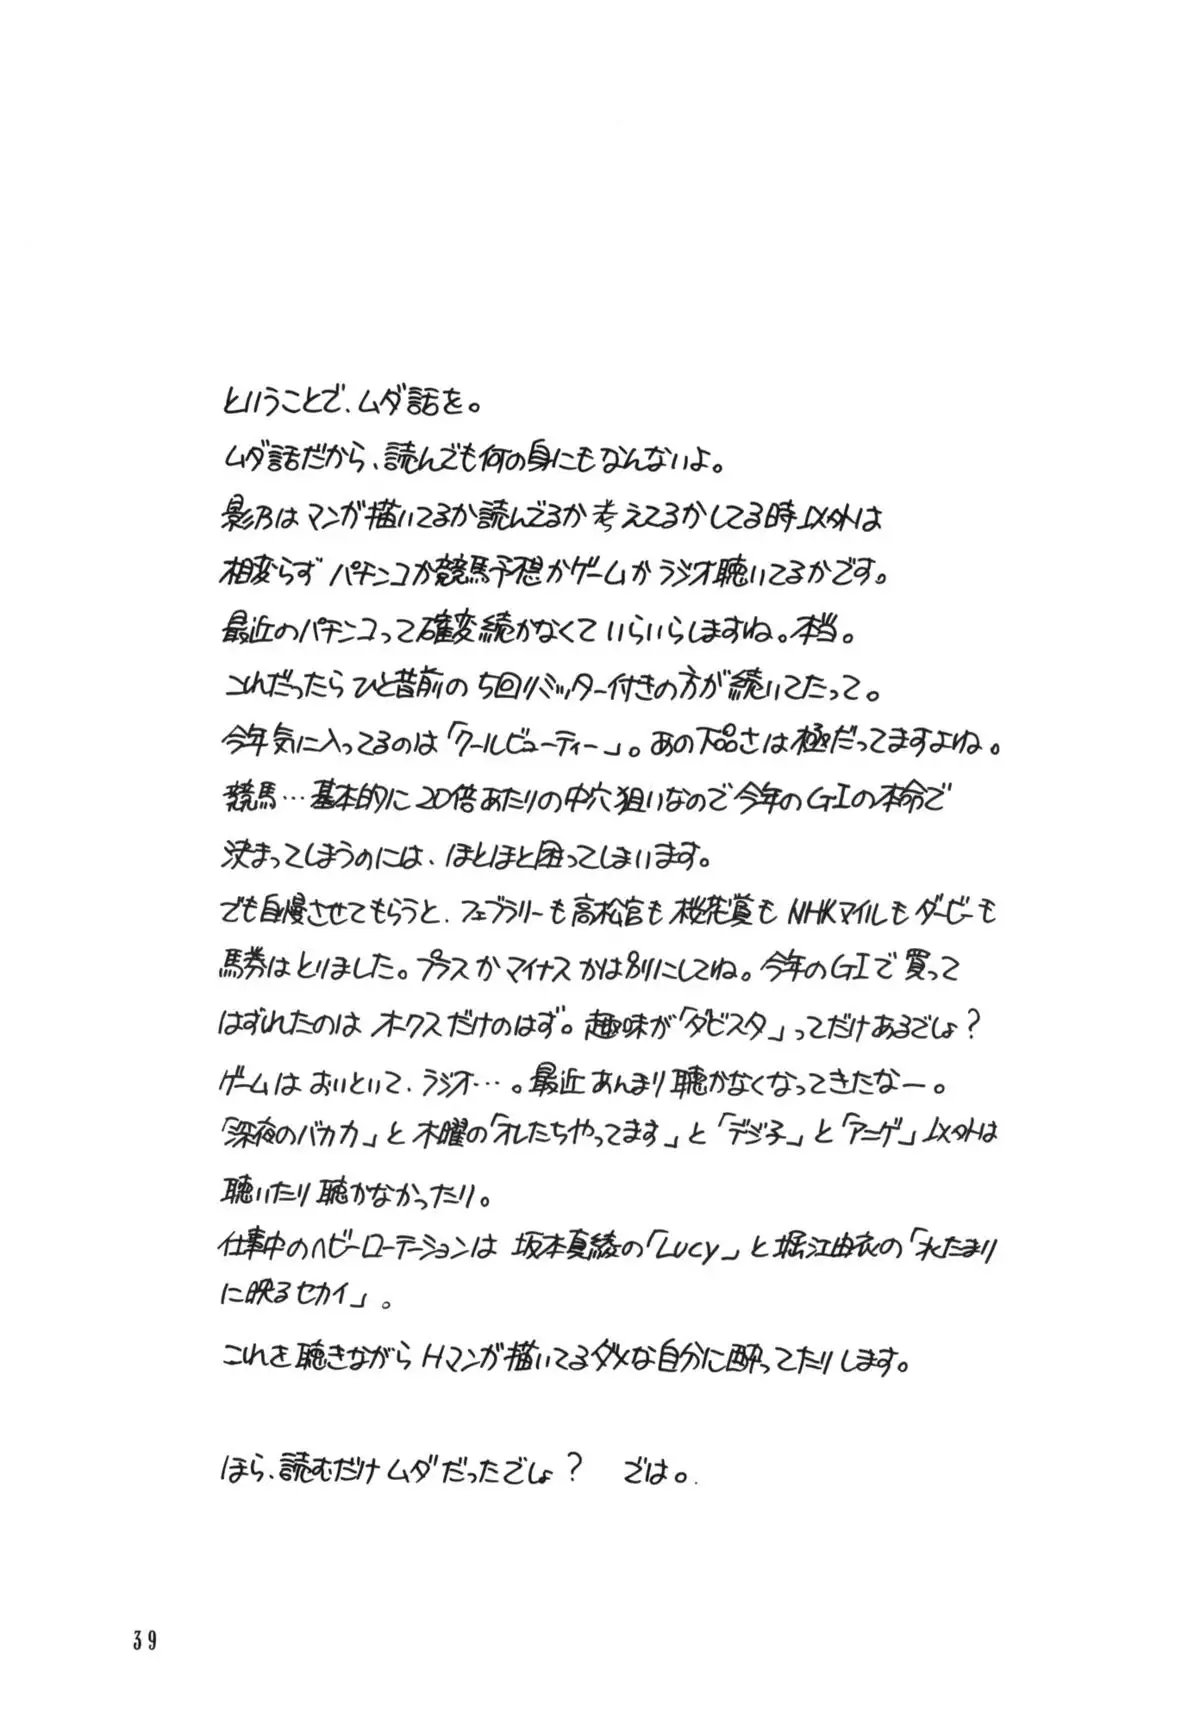 ということで、ムダ話を。
ムダ話だから、読んでも何の身にもなんないよ。
影乃はマンガ描いてるか読んでるか考えてるかしてる時以外は
相変らずパチンコか競馬予想かゲームかラジオ聴いてるかです。
最近のパチンコって確変続かなくていらいらしますね。本当。
これだったらひと昔前の5回リミッター付きの方が続いてたって。
今年気に入ってるのは「クールビューティー」。あの下品さは極だってますよね。
競馬…基本的に20倍あたりの中穴狙いなので今年のGIの本命で
決まってしまうのには、ほとほと困ってしまいます。
でも自慢させてもらうと、フェブラリーも高松宮も桜花賞もNHKマイルもダービーも
馬券はとりました。プラスかマイナスかは別にしてね。今年のGIで買って
はずれたのはオークスだけのはず。趣味が「ダビスタ」ってだけあるでしょ?
ゲームはおいといて、ラジオ…。最近あんまり聴かなくなってきたなー。
「深夜のバカカ」と木曜の「オレたちやってます」と「デジ子」と「アニゲ」以外は
聴いたり聴かなかったり。
仕事中のヘビーローテーションは坂本真綾の「Lucy」と堀江由衣の「水たまり
に映るセカイ」。
これを聴きながらHマンガ描いてるダメな自分に酔ってたりします。
ほら、読むだけムダだったでしょ? では。
39